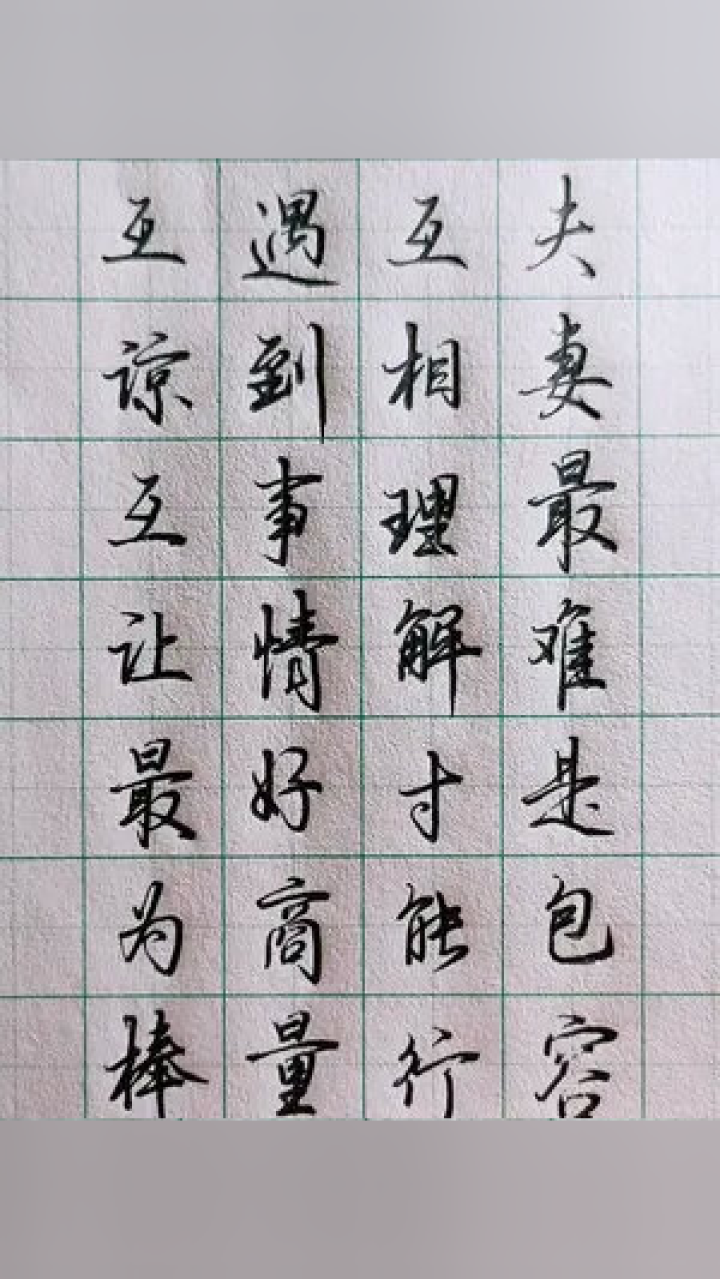 夫妻最难是包容
互相理解才能行
遇到事情好商量
互谅互让最为棒